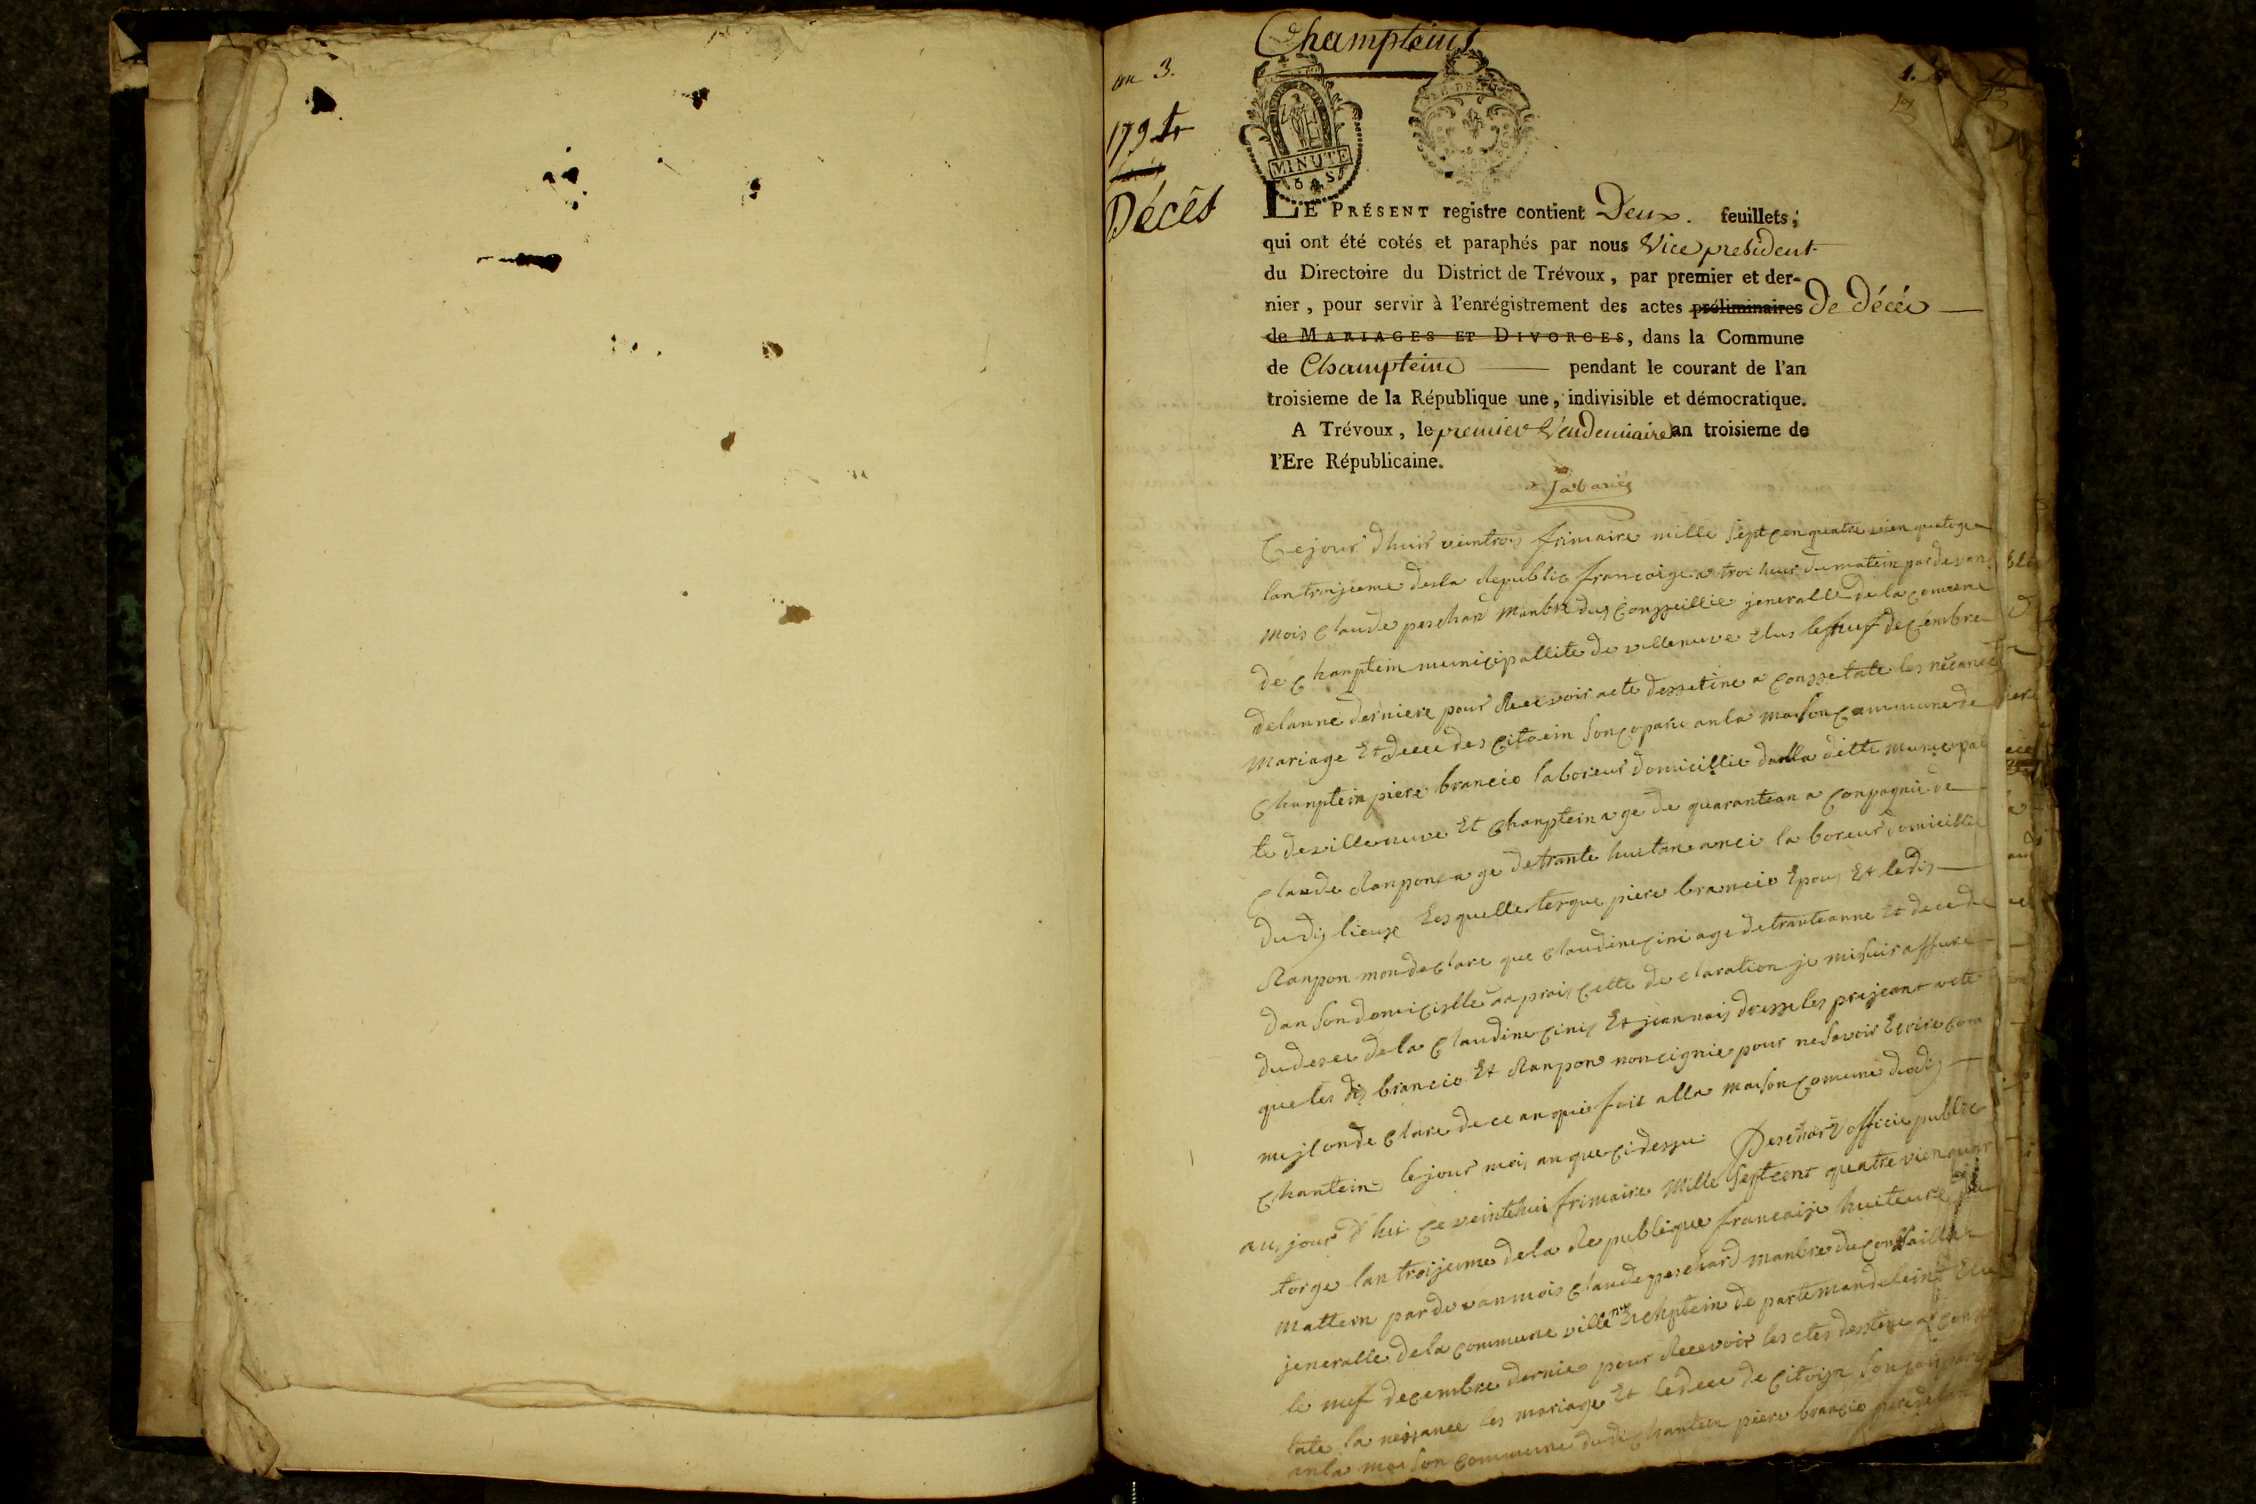 Champteins
an 3.
1.
1794
Décès
MINUTE
6 S
LE PRÉSENT registre contient Deux. feuillets;
qui ont été cotés et paraphés par nous Vice president
du Directoire du District de Trévoux, par premier et der-
nier, pour servir à l'enrégistrement des actes préliminaires De décés
de MARIAGES ET DIVORCES, dans la Commune
de Champteins pendant le courant de l'an
troisieme de la République une, indivisible et démocratique.
A Trévoux, le premier Vendemiaire an troisieme de
l'Ere Républicaine.
Ce jour dhuis veintrois frimaire mille sept cen quatre vien quatorge
lan troisieme de la Republic francoige a troi heur du matein pardevan
mois Claude peschard manbre du Consseillie jeneralle de la comune
de Chanptein municipallite de villenuve elus le neuf decembre
delanne derniere pour Recevoir acte dessetine a consstate les nesance
mariage Et dece des citoien son conparu an la maison commune de
Chanptein piere brancie laboreur domicillie dan la ditte municipal
te de villenuve Et Chanptein age de quarantean a conpagnie de
Claude Ranpon age de trante huit an anci laboreur domicillie
du dis lieux les quelles tes que piere brancie Epous Et ledis
Ranpon mon declare que Claudine Cini age de trante anne Et decede
dan son domicille aprais cette declaration je me suis assure
du dese de la Claudine Cinis Et jean nais dresse les prejeant acte
que les dis brancie Et Ranpon non cignie pour ne savoir Ecrire com
me jl on declare de ce anquis fait alla maison comune du dis
Chantein le jour mois an que ci dessu Peschard officie public
aus jour d'hui ce veintehui frimaire mille sept cent quatre vien quar
torge lan troisieme de la Republique francaise huiteure du
mattein pardevan mois Claude peschard manbre du Conssaillie
jeneralle de la commune ville nve et chptein departeman de lein Elu
le neuf decembre dernie pour Recevoir les ctes destine a cons
tate la nessance les mariage Et le dece de citoijn son conparu
an la maison commune du di Chantein piere brancie pere de